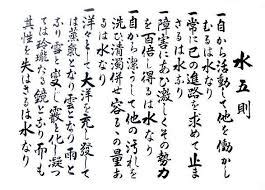 水五則
一自から活動して他を働かし
むるは水なり
一常に己の進路を求めて止ま
さるは水なり
一障害にあひ激しくその勢力
を百倍し得るは水なり
一自から潔うして他の汚れを
洗ひ清濁併せ容るゝの量あ
るは水なり
一洋々として大洋を充し発して
は蒸気となり雲となり雨と
なり雪と変し霰と化し凝つ
ては玲瓏たる鏡となり而も
其性を失はさるは水なり